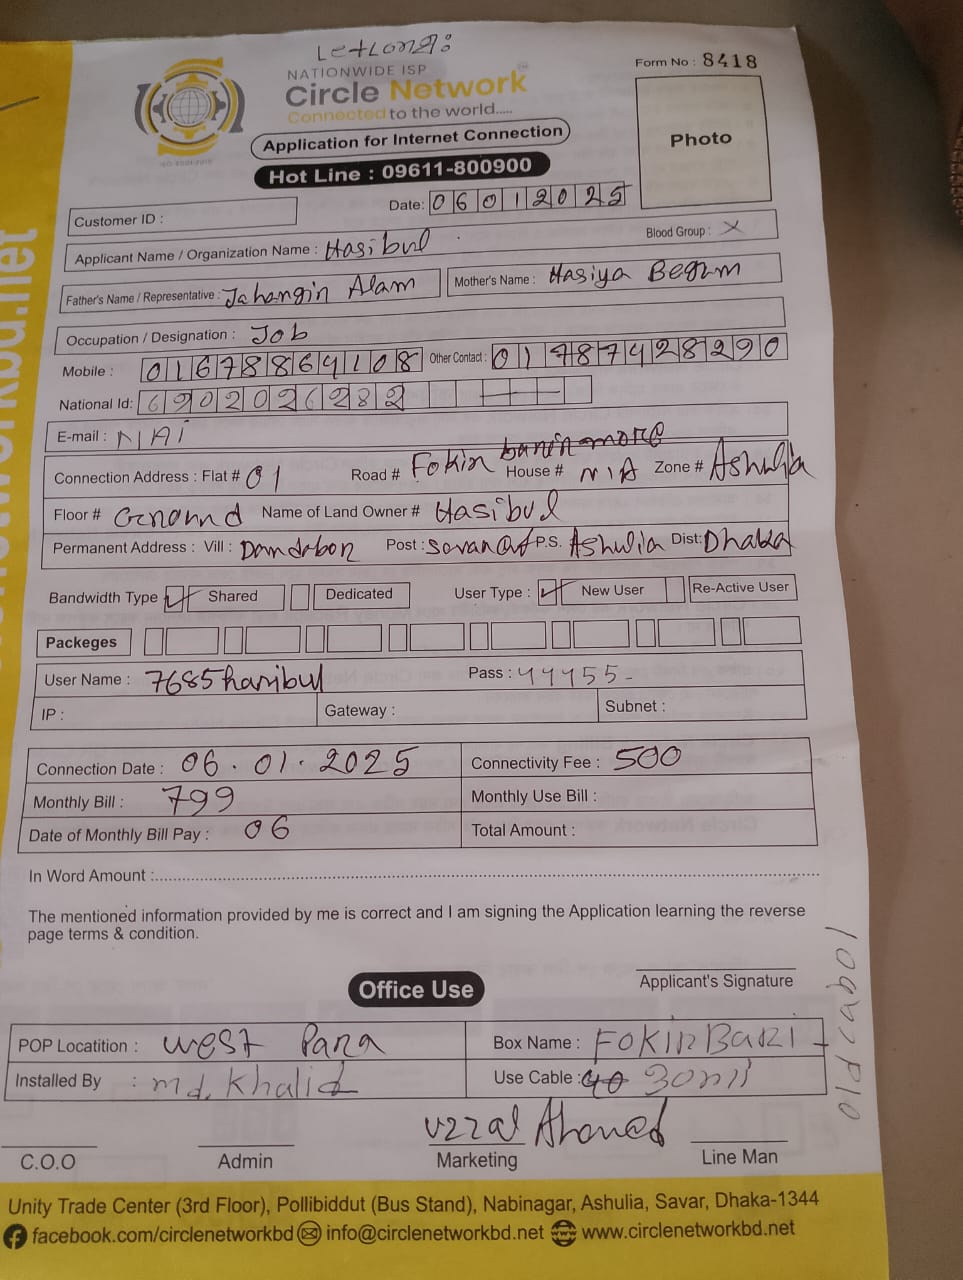 NATIONWIDE ISP
Form No : 8418
Circle Network
Connected to the world.....
Photo
Application for Internet Connection
Hot Line : 09611-800900
Date: 06012025
Customer ID :
Applicant Name / Organization Name : Hasibul Blood Group : X
Father's Name / Representative : Jahangin Alam Mother's Name : Hasiya Begum
Occupation / Designation : Job
Mobile : 01678864108 Other Contact : 01787428290
National Id: 6902026282
E-mail : N/A
Connection Address : Flat # 01 Road # Fokin barin more House # N/A Zone # Ashulia
Floor # Ground Name of Land Owner # Hasibul
Permanent Address : Vill : Dandabon Post : P.S. Ashulia Dist: Dhaka
Bandwidth Type Shared Dedicated User Type : New User Re-Active User
Packeges
User Name : 7685haribul Pass : 44455-
IP : Gateway : Subnet :
Connection Date : 06.01.2025 Connectivity Fee : 500
Monthly Bill : 799 Monthly Use Bill :
Date of Monthly Bill Pay : 06 Total Amount :
In Word Amount :
The mentioned information provided by me is correct and I am signing the Application learning the reverse
page terms & condition.
Applicant's Signature
Office Use
POP Locatition : West Para Box Name : FOKIR BARI
Installed By : Md. Khalid Use Cable : 30mii
old cabol
Uzzal Ahamed
C.O.O Admin Marketing Line Man
Unity Trade Center (3rd Floor), Pollibiddut (Bus Stand), Nabinagar, Ashulia, Savar, Dhaka-1344
facebook.com/circlenetworkbd info@circlenetworkbd.net www.circlenetworkbd.net